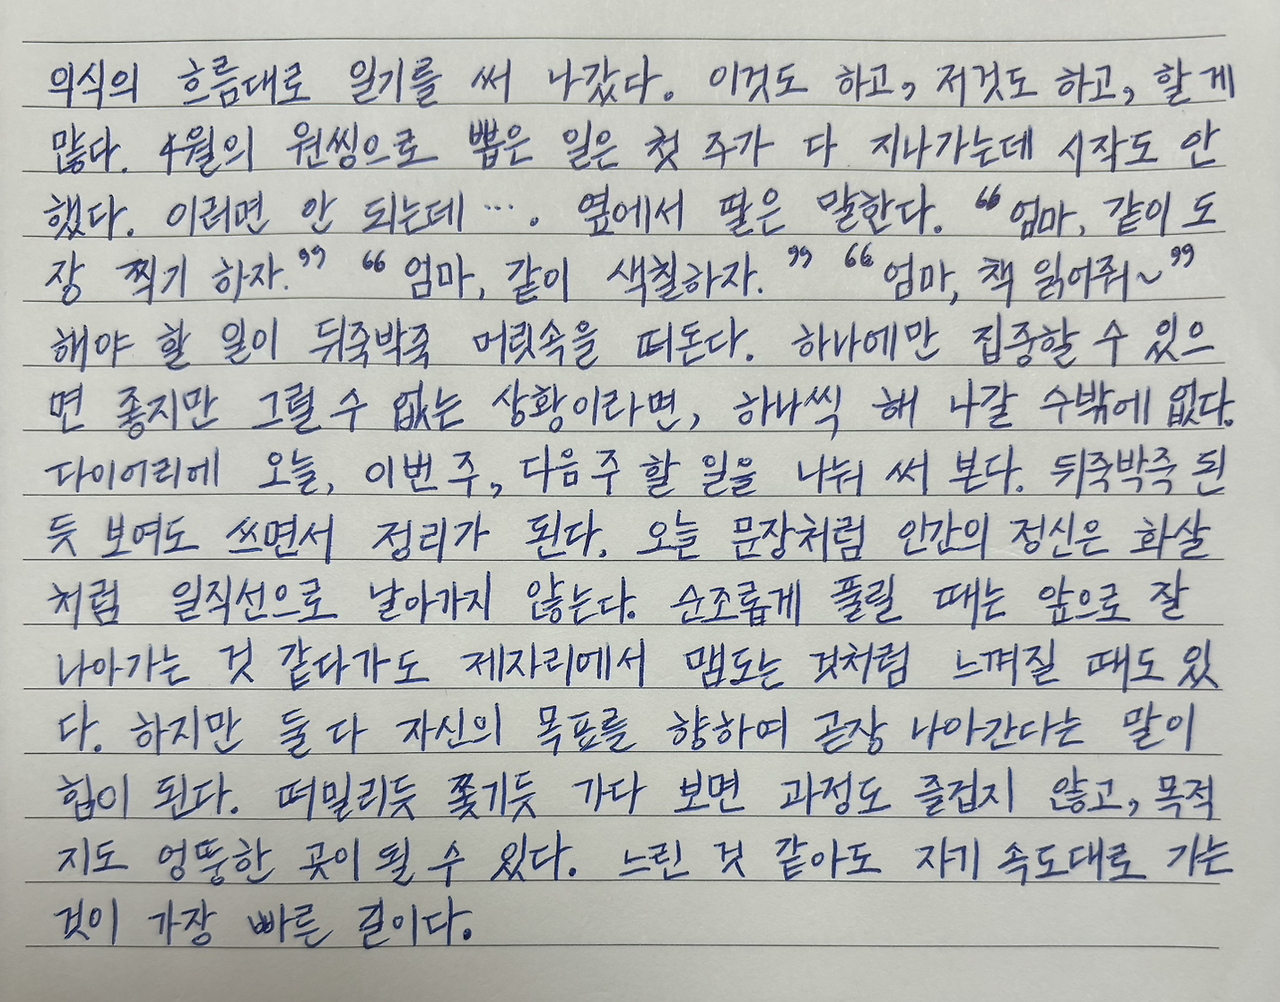 의식의 흐름대로 일기를 써 나갔다. 이것도 하고, 저것도 하고, 할 게
많다. 4월의 원씽으로 뽑은 일은 첫 주가 다 지나가는데 시작도 안
했다. 이러면 안 되는데 …. 옆에서 딸은 말한다. “엄마, 같이 도
장 찍기 하자.” “엄마, 같이 색칠하자.” “엄마, 책 읽어줘~”
해야 할 일이 뒤죽박죽 머릿속을 떠돈다. 하나에만 집중할 수 있으
면 좋지만 그럴 수 없는 상황이라면, 하나씩 해 나갈 수밖에 없다.
다이어리에 오늘, 이번 주, 다음 주 할 일을 나눠 써 본다. 뒤죽박죽 된
듯 보여도 쓰면서 정리가 된다. 오늘 문장처럼 인간의 정신은 화살
처럼 일직선으로 날아가지 않는다. 순조롭게 풀릴 때는 앞으로 잘
나아가는 것 같다가도 제자리에서 맴도는 것처럼 느껴질 때도 있
다. 하지만 둘 다 자신의 목표를 향하여 곧장 나아간다는 말이
힘이 된다. 떠밀리듯 쫓기듯 가다 보면 과정도 즐겁지 않고, 목적
지도 엉뚱한 곳이 될 수 있다. 느린 것 같아도 자기 속도대로 가는
것이 가장 빠른 길이다.